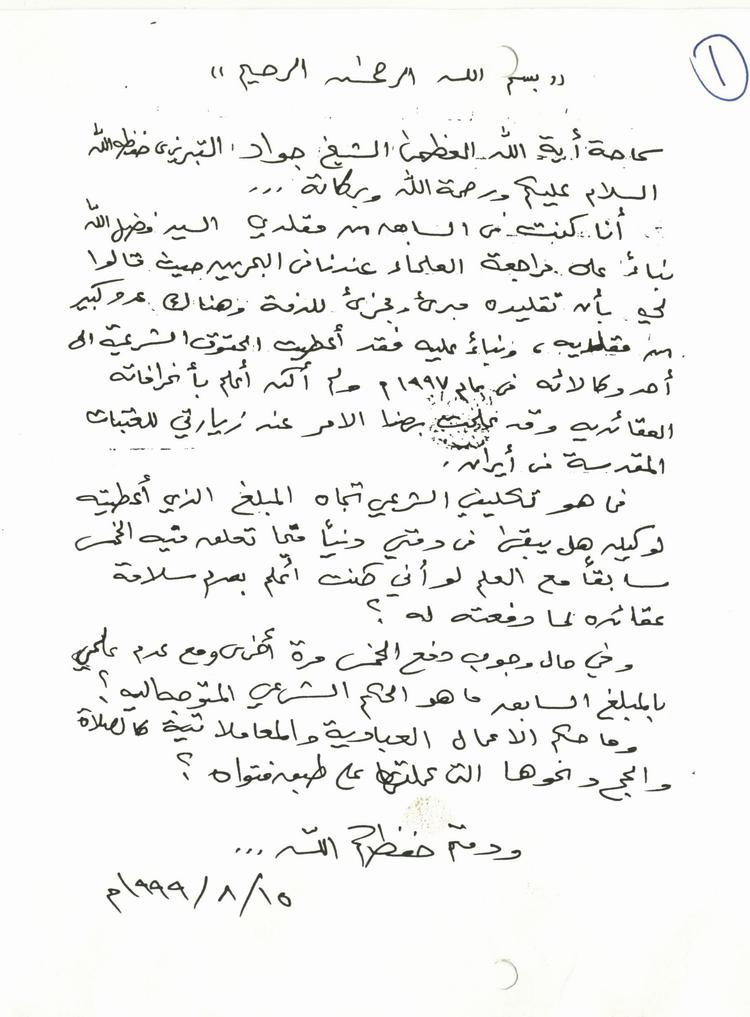 ١
(( بسم الله الرحمن الرحيم ))
سماحة أية الله العظمى الشيخ جواد التبريزي حفظه الله
السلام عليكم ورحمة الله وبركاتة ...
أنا كنت في السابق من مقلدي السيد فضل الله
بناءً على مراجعة العلماء عندنا في البحرين حيث قالوا
لي بأن تقليده مبرئ ومجزئ للذمة وهناك عدد كبير
من مقلديه ، وبناءً عليه فقد أعطيت الحقوق الشرعية الى
أحد وكلائه في عام ١٩٩٧م ولم أكن أعلم بأنحرافاته
العقائدية وقد علمت بهذا الامر عند زيارتي للعتبات
المقدسة في أيران .
فما هو تكليفي الشرعي تجاه المبلغ الذي أعطيته
لوكيله هل يبقى في ذمتي ديناً فيما تعلق فيه الخمس
سابقاً مع العلم لو أني كنت أعلم بعدم سلامة
عقائده لما دفعته له ؟
وفي حال وجوب دفع الخمس مرة أخرى ومع عدم علمي
بالمبلغ السابق ما هو الحكم الشرعي المتوجه اليه ؟
وما حكم الاعمال العبادية والمعاملاتية كالصلاة
والحج ونحوها التي عملتها على طبق فتواه ؟
ودمتم حفظكم الله ...
١٥/ ٨/ ١٩٩٩م